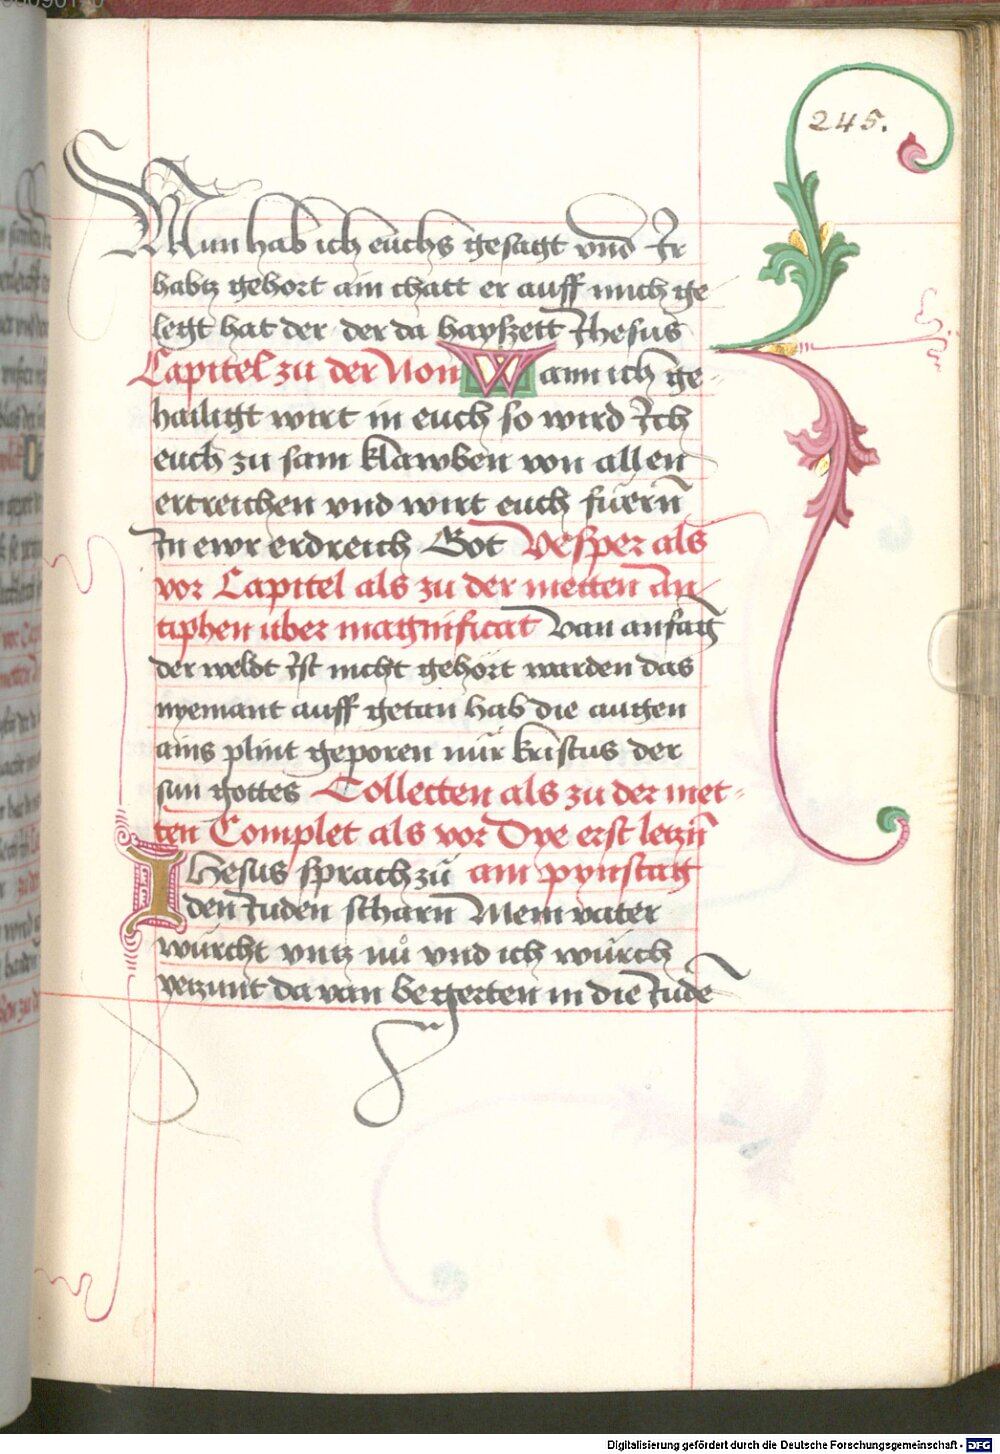 245.
Nun hab ich euchs gesagt vnd Ir
habtz gehort ain chatt er auff mich ge
legt hat der der da hayszett Ihesus
Capitel zu der Non Wann ich ge-
hailigt wirt in euch so wird Ich
euch zu sam klawben von allen
ertreichen vnd wirt euch fuern̄
In ewr erdreich Got Vesper als
vor Capitel als zu der metten an
tiphen uber magnificat Van anfāg
der weldt Ist nicht gehort warden das
nyemant auff getan hab die augen
ains plint geporen nur kristus der
sun gottes Collecten als zu der met-
ten Complet als vor Dye erst letzn̄
IHesus sprach zů am pfinstag
den Iuden scharn Mein vater
würcht vntz nů vnd ich würch
yetzunt da van begerten in die Iudē
Digitalisierung gefördert durch die Deutsche Forschungsgemeinschaft - DFG